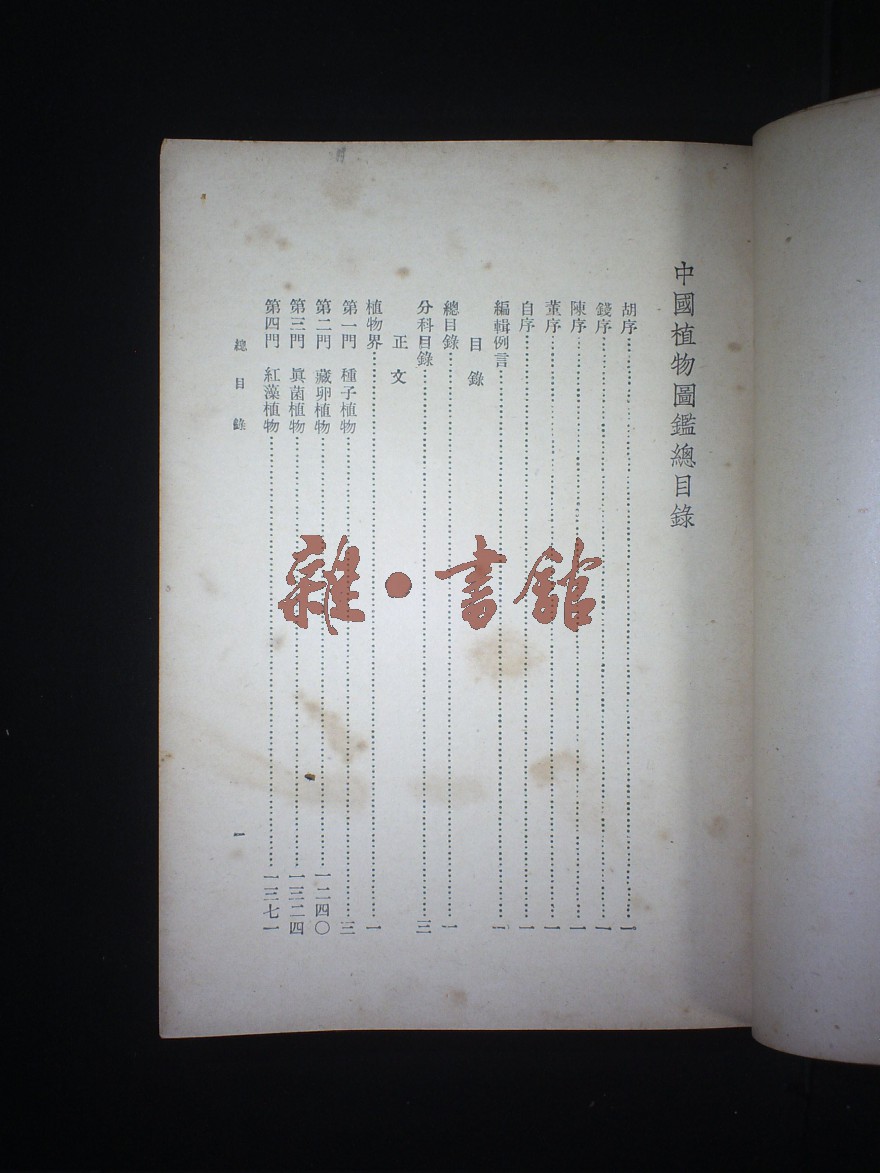 中國植物圖鑑總目錄
胡序……一
錢序……一
陳序……一
董序……一
自序……一
編輯例言……一
目錄
總目錄……一
分科目錄……三
正文
植物界……一
第一門 種子植物……三
第二門 藏卵植物……一二四〇
第三門 眞菌植物……一三二四
第四門 紅藻植物……一三七一
總目錄
一
雜·書館